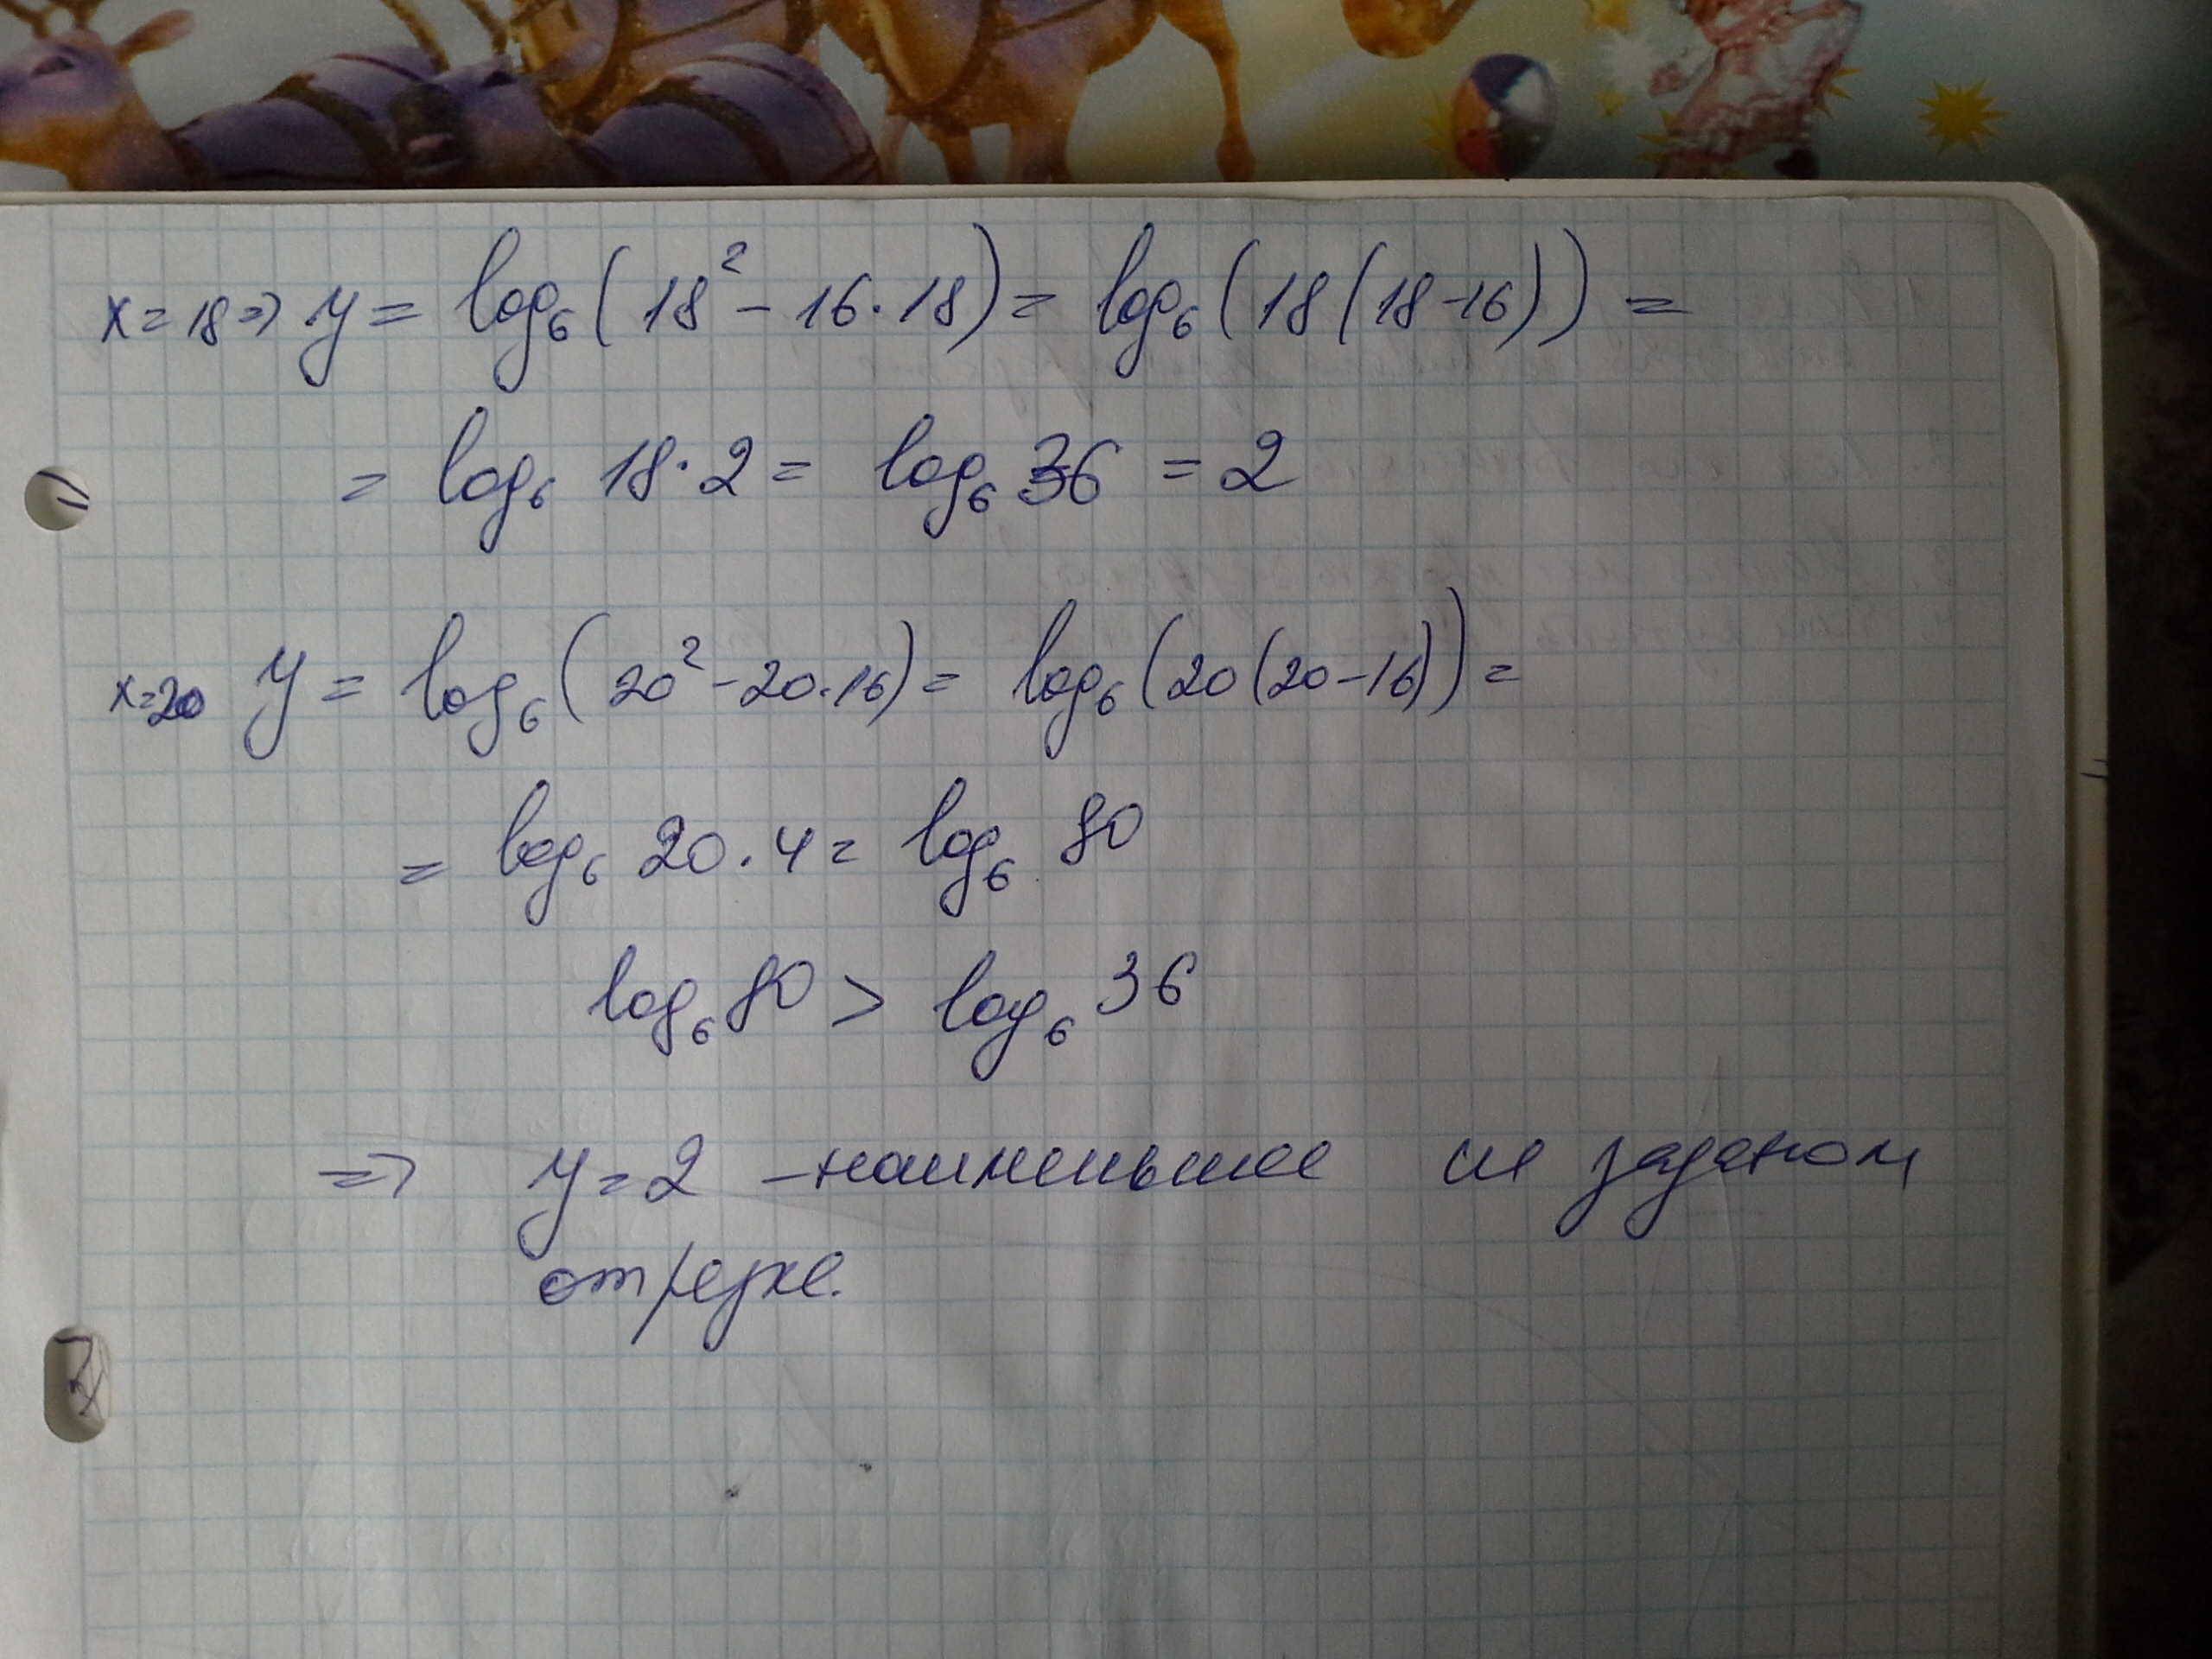 x=18⇒ y = log₆(18²-16·18)= log₆(18(18-16)) =
= log₆ 18·2 = log₆ 36 = 2
x=20 y = log₆(20²-20·16)= log₆(20(20-16))=
= log₆ 20·4 = log₆ 80
log₆ 80 > log₆ 36
⇒ y=2 -наименьшее на заданом
отрезке.